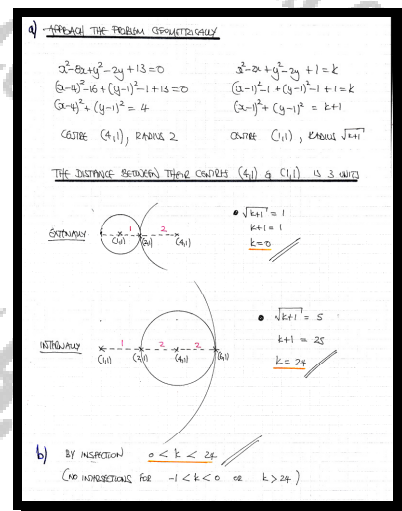 a) APPROACH THE PROBLEM GEOMETRICALLY
x²-8x+y²-2y+13=0
(x-4)²-16+(y-1)²-1+13=0
(x-4)²+(y-1)²=4
CENTRE (4,1), RADIUS 2
x²-2x+y²-2y+1=k
(x-1)²-1+(y-1)²-1+1=k
(x-1)²+(y-1)²=k+1
CENTRE (1,1), RADIUS √k+1
THE DISTANCE BETWEEN THEIR CENTRES (4,1) & (1,1) IS 3 UNITS
EXTERNALLY
1 2
(1,1) (2,1) (4,1)
• √k+1 = 1
k+1 = 1
k=0
INTERNALLY
1 2 2
(1,1) (2,1) (4,1) (6,1)
• √k+1 = 5
k+1 = 25
k= 24
b) BY INSPECTION 0 < k < 24
(NO INTERSECTIONS FOR -1 < k < 0 OR k > 24)